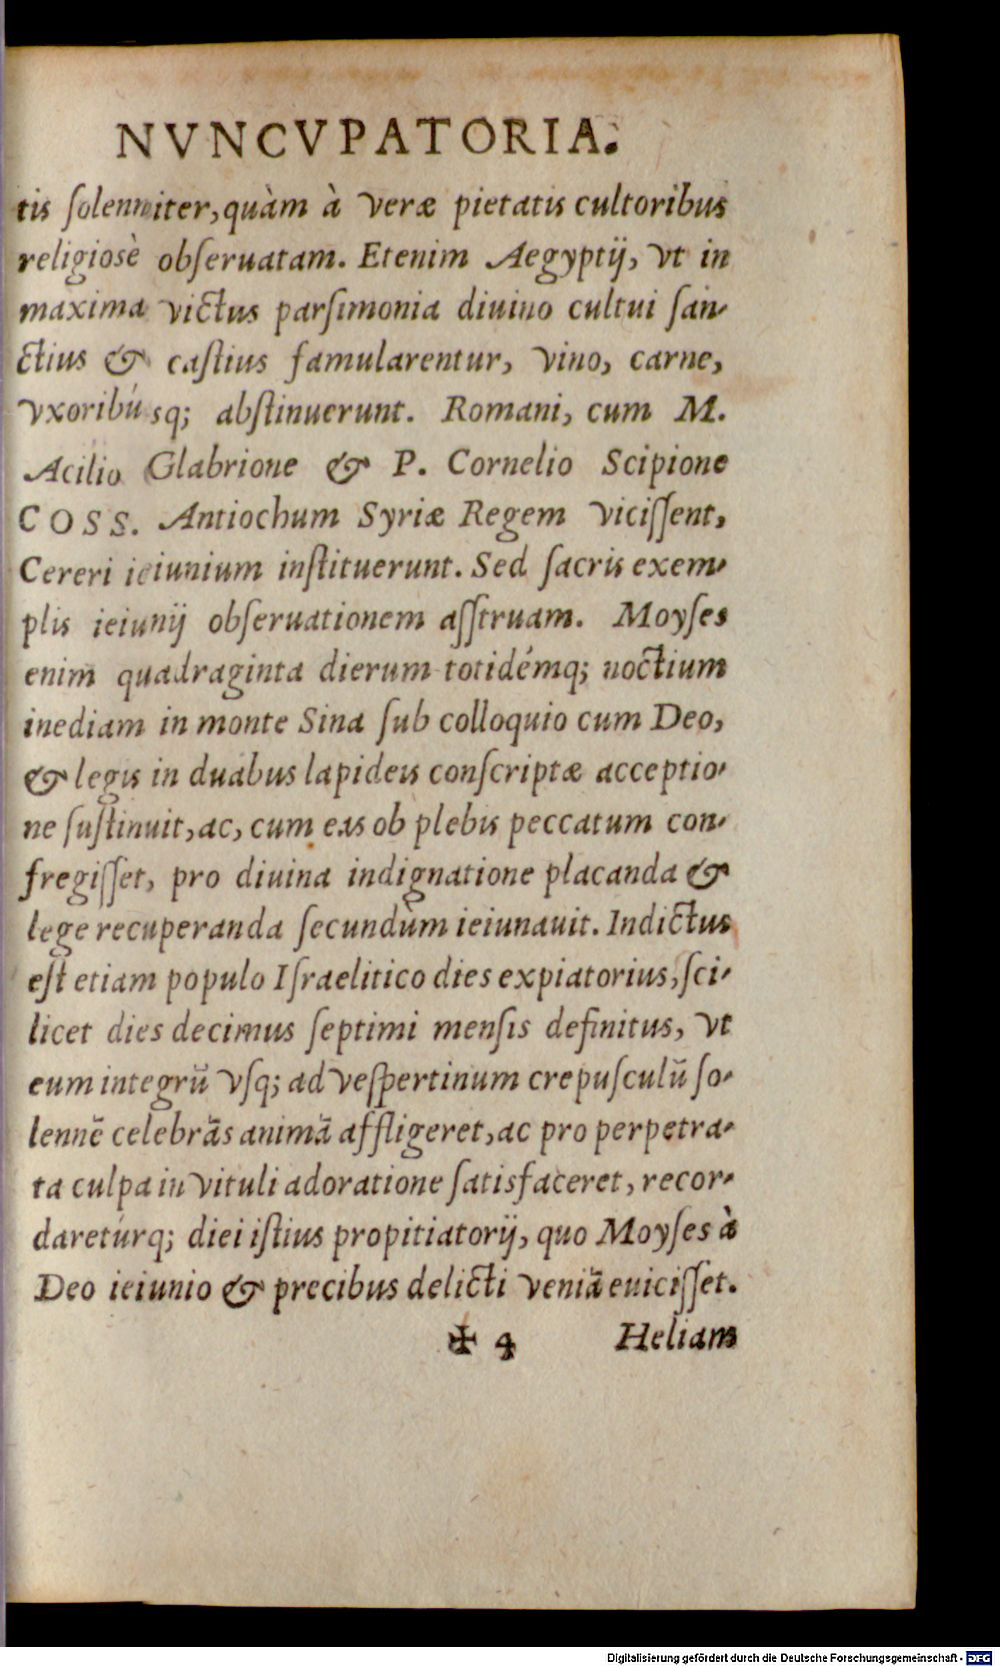 NVNCVPATORIA.
tis ſolenniter, quàm à veræ pietatis cultoribus
religiosè obſeruatam. Etenim Aegyptij, vt in
maxima victus parſimonia diuino cultui ſan-
ctius & caſtius famularentur, vino, carne,
vxoribúsq; abſtinuerunt. Romani, cum M.
Acilio Glabrione & P. Cornelio Scipione
COSS. Antiochum Syriæ Regem viciſſent,
Cereri ieiunium inſtituerunt. Sed ſacris exem-
plis ieiunij obſeruationem aſſtruam. Moyſes
enim quadraginta dierum totidémq; noctium
inediam in monte Sina ſub colloquio cum Deo,
& legis in duabus lapideis conſcriptæ acceptio-
ne ſuſtinuit, ac, cum eas ob plebis peccatum con-
fregiſſet, pro diuina indignatione placanda &
lege recuperanda ſecundùm ieiunauit. Indictus
eſt etiam populo Iſraelitico dies expiatorius, ſci-
licet dies decimus ſeptimi menſis definitus, vt
eum integrũ vſq; ad veſpertinum crepuſculũ ſo-
lennẽ celebrãs animã affligeret, ac pro perpetra-
ta culpa in vituli adoratione ſatisfaceret, recor-
daretúrq; diei iſtius propitiatorij, quo Moyſes à
Deo ieiunio & precibus delicti veniã euiciſſet.
✠ 4 Heliam
Digitalisierung gefördert durch die Deutsche Forschungsgemeinschaft - DFG